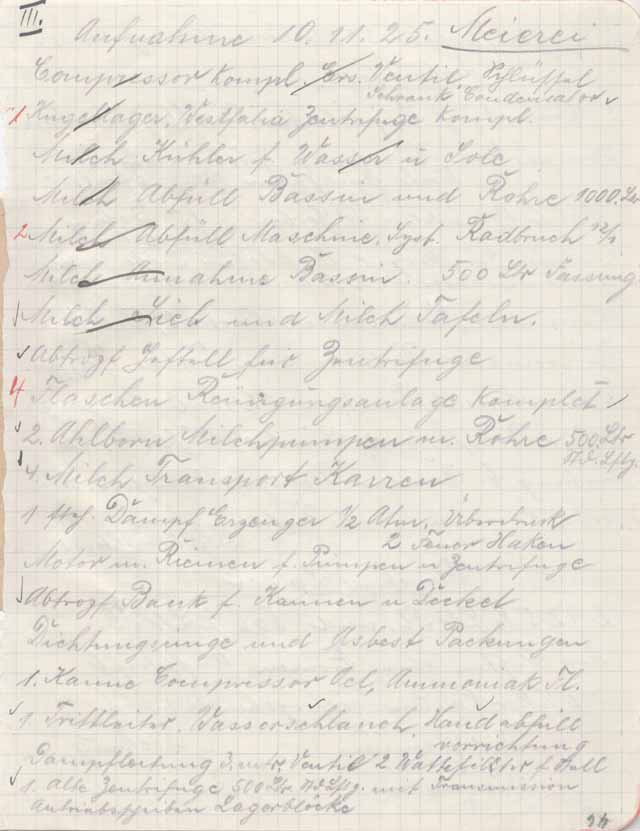 III.
Aufnahme 10.11.25. Meierei
Compressor kompl. Ers. Ventil Schlüssel
Schrank Condensator
1 Kugellager, Westfalia Zentrifuge kompl.
Milch Kühler f. Wasser u Sole
Milch Abfüll Bassin und Rohre 1000 Ltr
2 Milch Abfüll Maschine, Syst. Radbruch
Milch Annahme Bassin. 500 Ltr Fassung
Milch Sieb und Milch Tafeln.
Abtropf Gestell für Zentrifuge
4 Flaschen Reinigungsanlage komplet
2. Ahlborn Milchpumpen m. Rohre 500 Ltr
Std. Lstg.
4. Milch Transport Karren
1 Dampf Erzeuger 1/2 Atm. Überdruck
2 Feuer Haken
Motor m. Riemen f. Pumpen u Zentrifuge
Abtropf Bank f. Kannen u Deckel
Dichtungsringe und Asbest Packungen
1. Kanne Compressor Oel, Ammoniak Fl.
1. Trittleiter, Wasserschlauch, Handabfüll
vorrichtung
Dampfleitung 3. mtr. Ventil 2 Wattefilter f. Stall
1. Alte Zentrifuge 500 Ltr Std. Lstg. mit Transmission
Antriebscheiben Lagerblöcke
24